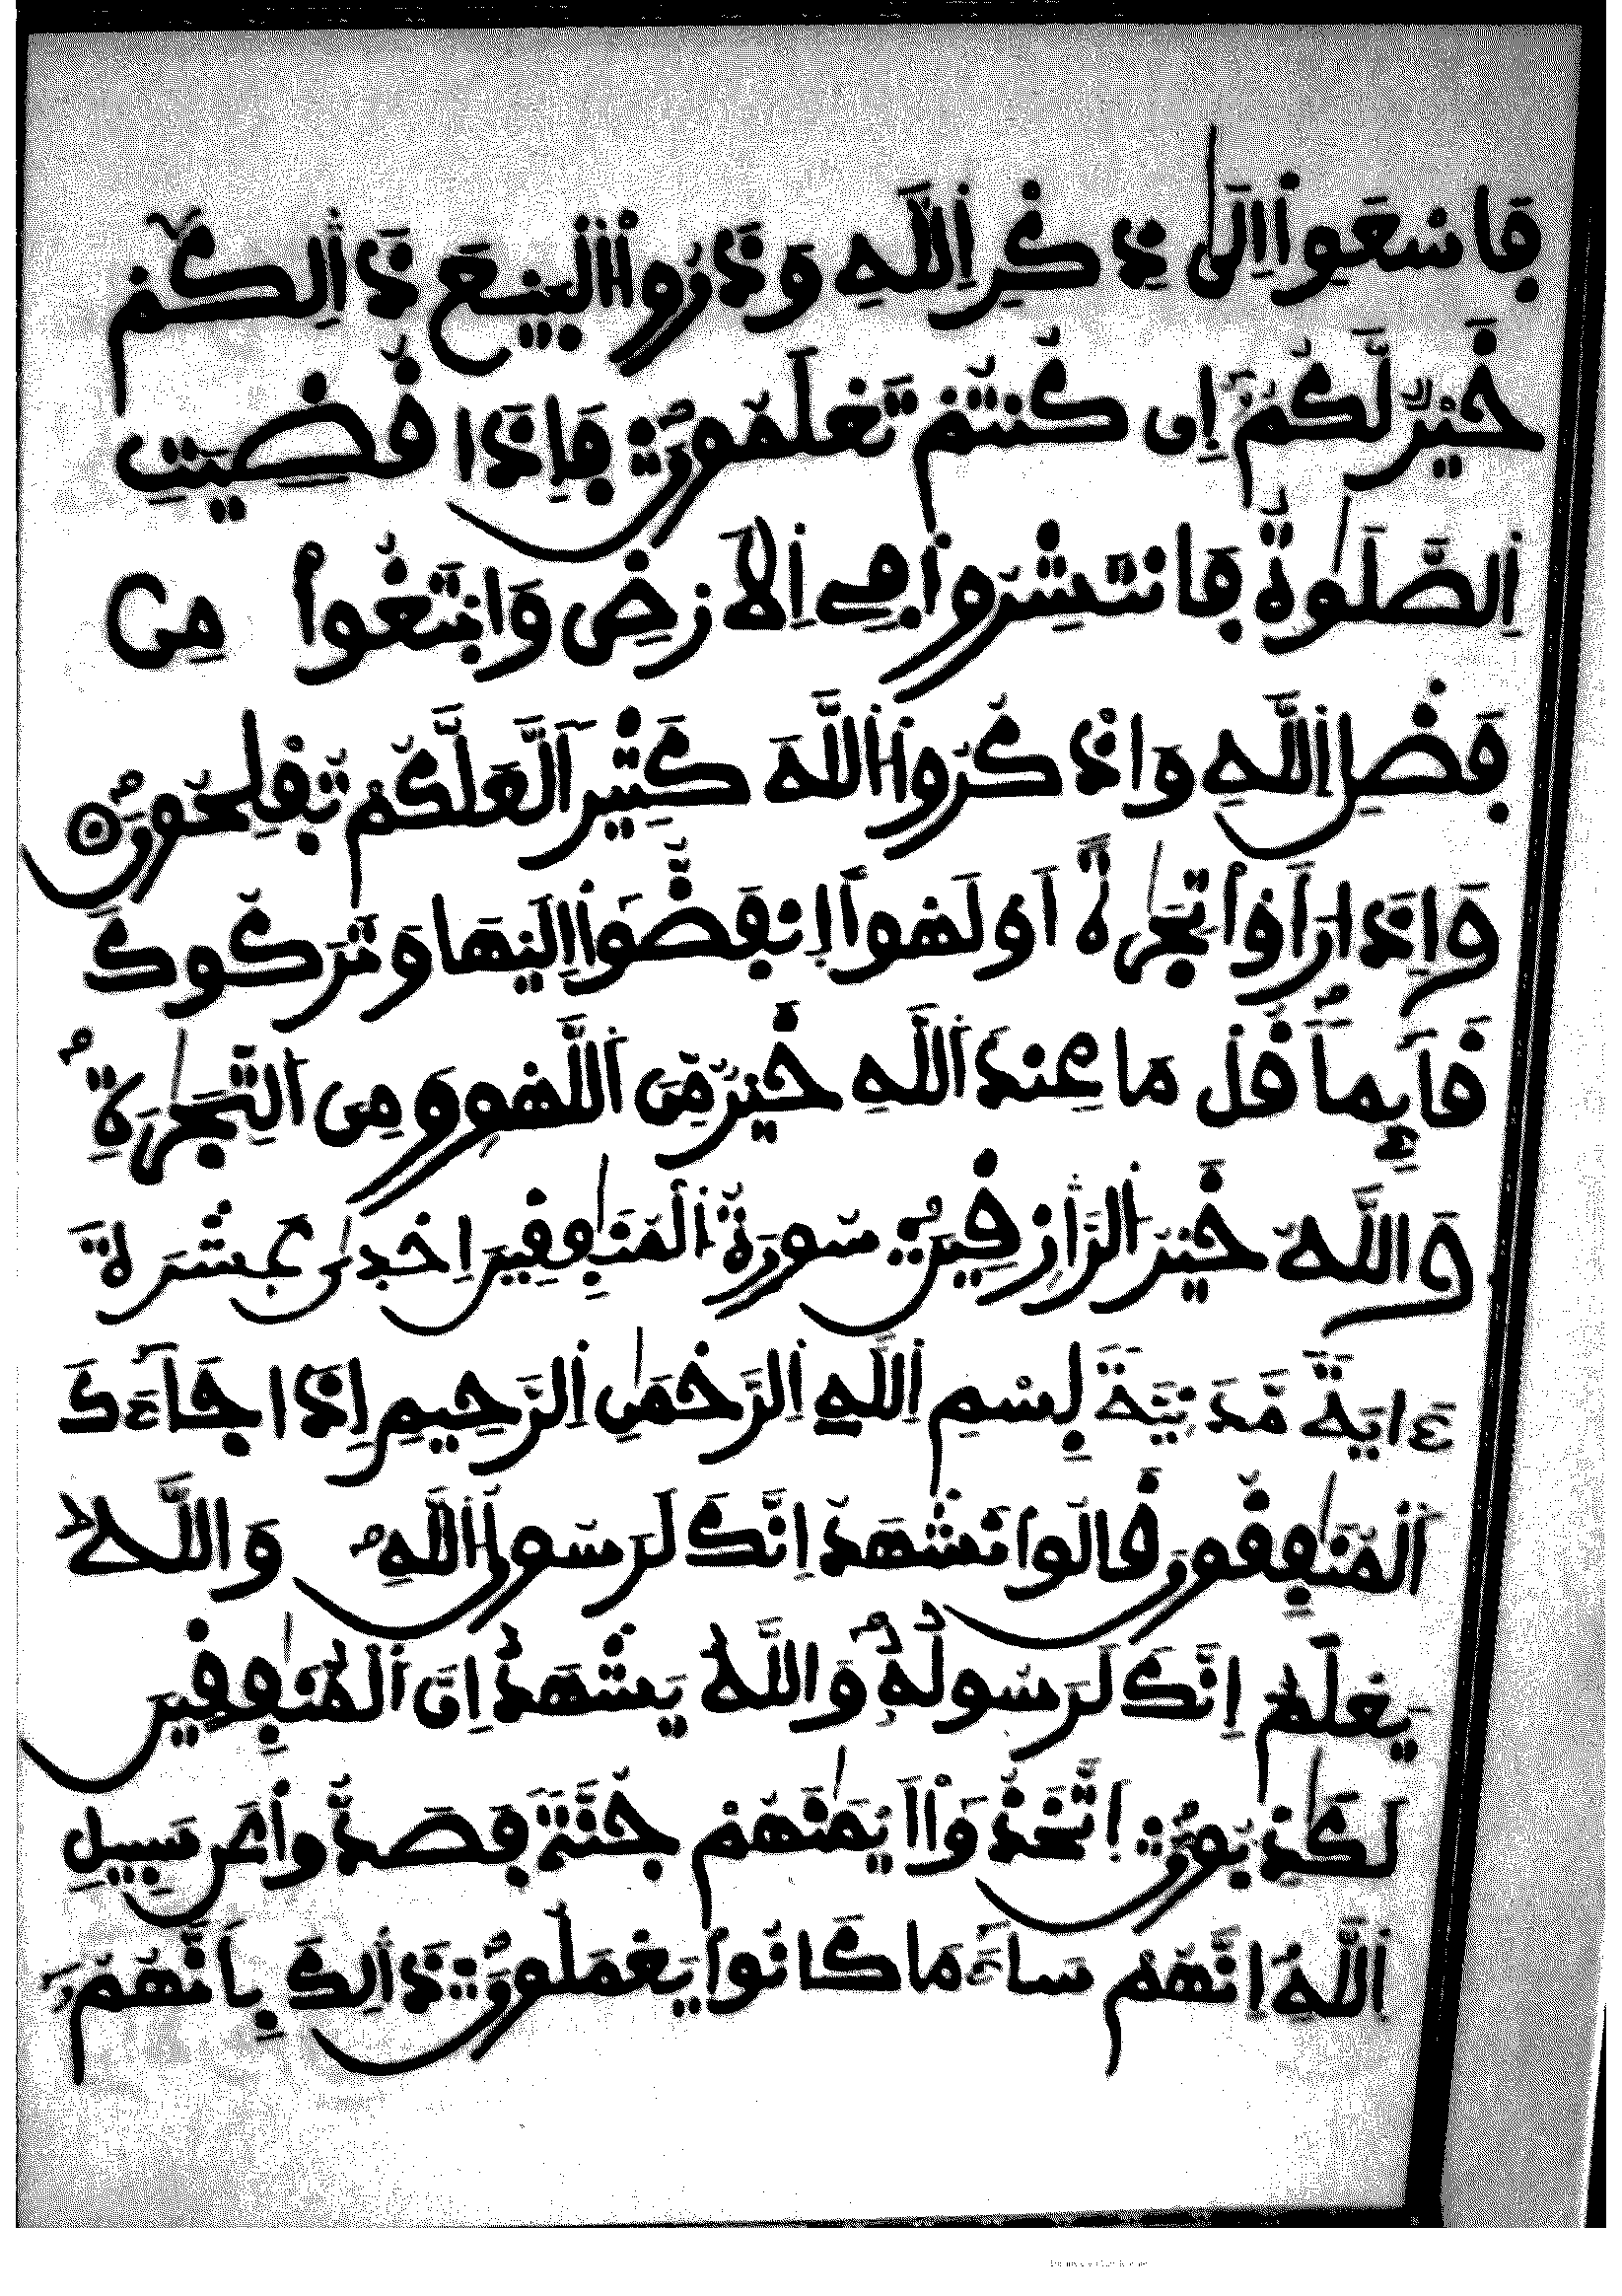 فَاسْعَوِاْ اِلَىٰ ذِكْرِ اِ۬للَّهِ وَذَرُواْ اُ۬لْبَيْعَ ذَٰلِكُمْ
خَيْرٞ لَّكُمُۥٓ إِن كُنتُمْ تَعْلَمُونَۖ فَإِذَا قُضِيَتِ
اِ۬لصَّلَوٰةُ فَانتَشِرُواْ فِے اِ۬لَارْضِ وَابْتَغُواْ مِن
فَضْلِ اِ۬للَّهِ وَاذْكُرُواْ اُ۬للَّهَ كَثِيراٗ لَّعَلَّكُمْ تُفْلِحُونَۖ
وَإِذَا رَأَوْاْ تِجَٰرَةً اَوْ لَهْواً اِ۪نفَضُّوٓاْ إِلَيْهَا وَتَرَكُوكَ
قَآئِماٗۖ قُلْ مَا عِندَ اَ۬للَّهِ خَيْرٞ مِّنَ اَ۬للَّهْوِ وَمِنَ اَ۬لتِّجَٰرَةِۖ
وَاللَّهُ خَيْرُ اُ۬لرَّٰزِقِينَۖ سُورَةُ اُ۬لْمُنَٰفِقِينَ إِحْدَىٰ عَشَرَةَ
ءَايَةٗ مَدَنِيَّةٞ بِسْمِ اِ۬للَّهِ اِ۬لرَّحْمَٰنِ اِ۬لرَّحِيمِ إِذَا جَآءَكَ
اَ۬لْمُنَٰفِقُونَ قَالُواْ نَشْهَدُ إِنَّكَ لَرَسُولُ اُ۬للَّهِۖ وَاللَّهُ
يَعْلَمُ إِنَّكَ لَرَسُولُهُۥ وَاللَّهُ يَشْهَدُ إِنَّ اَ۬لْمُنَٰفِقِينَ
لَكَٰذِبُونَۖ اَ۪تَّخَذُوٓاْ أَيْمَٰنَهُمْ جُنَّةٗ فَصَدُّواْ عَن سَبِيلِ
اِ۬للَّهِۖ إِنَّهُمْ سَآءَ مَا كَانُواْ يَعْمَلُونَۖ ذَٰلِكَ بِأَنَّهُمُۥٓ